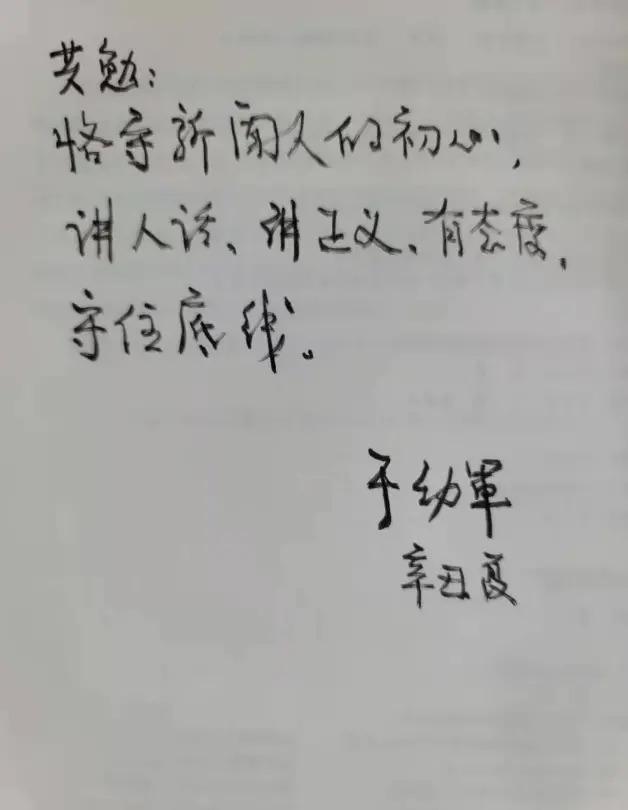 共勉:
恪守新闻人的初心,
讲人话、讲正义、有态度,
守住底线。
于幼軍
辛丑夏